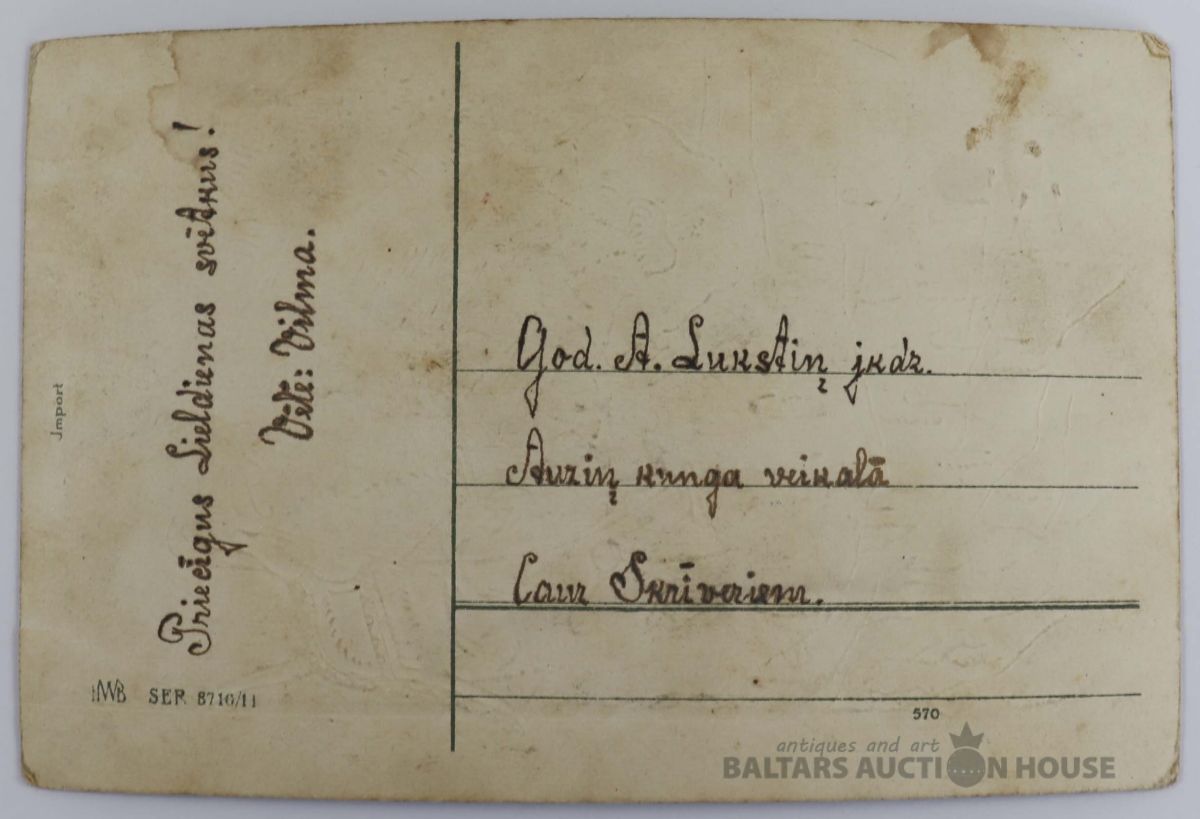 Priecīgus Lieldienas svētkus!
Vēlē: Vilma.
Jmport
God. A. Lukstiņ jkdz.
Auziņ kunga veikalā
Caur Skrīveriem.
SER 8710/11
570
antiques and art
BALTARS AUCTION HOUSE